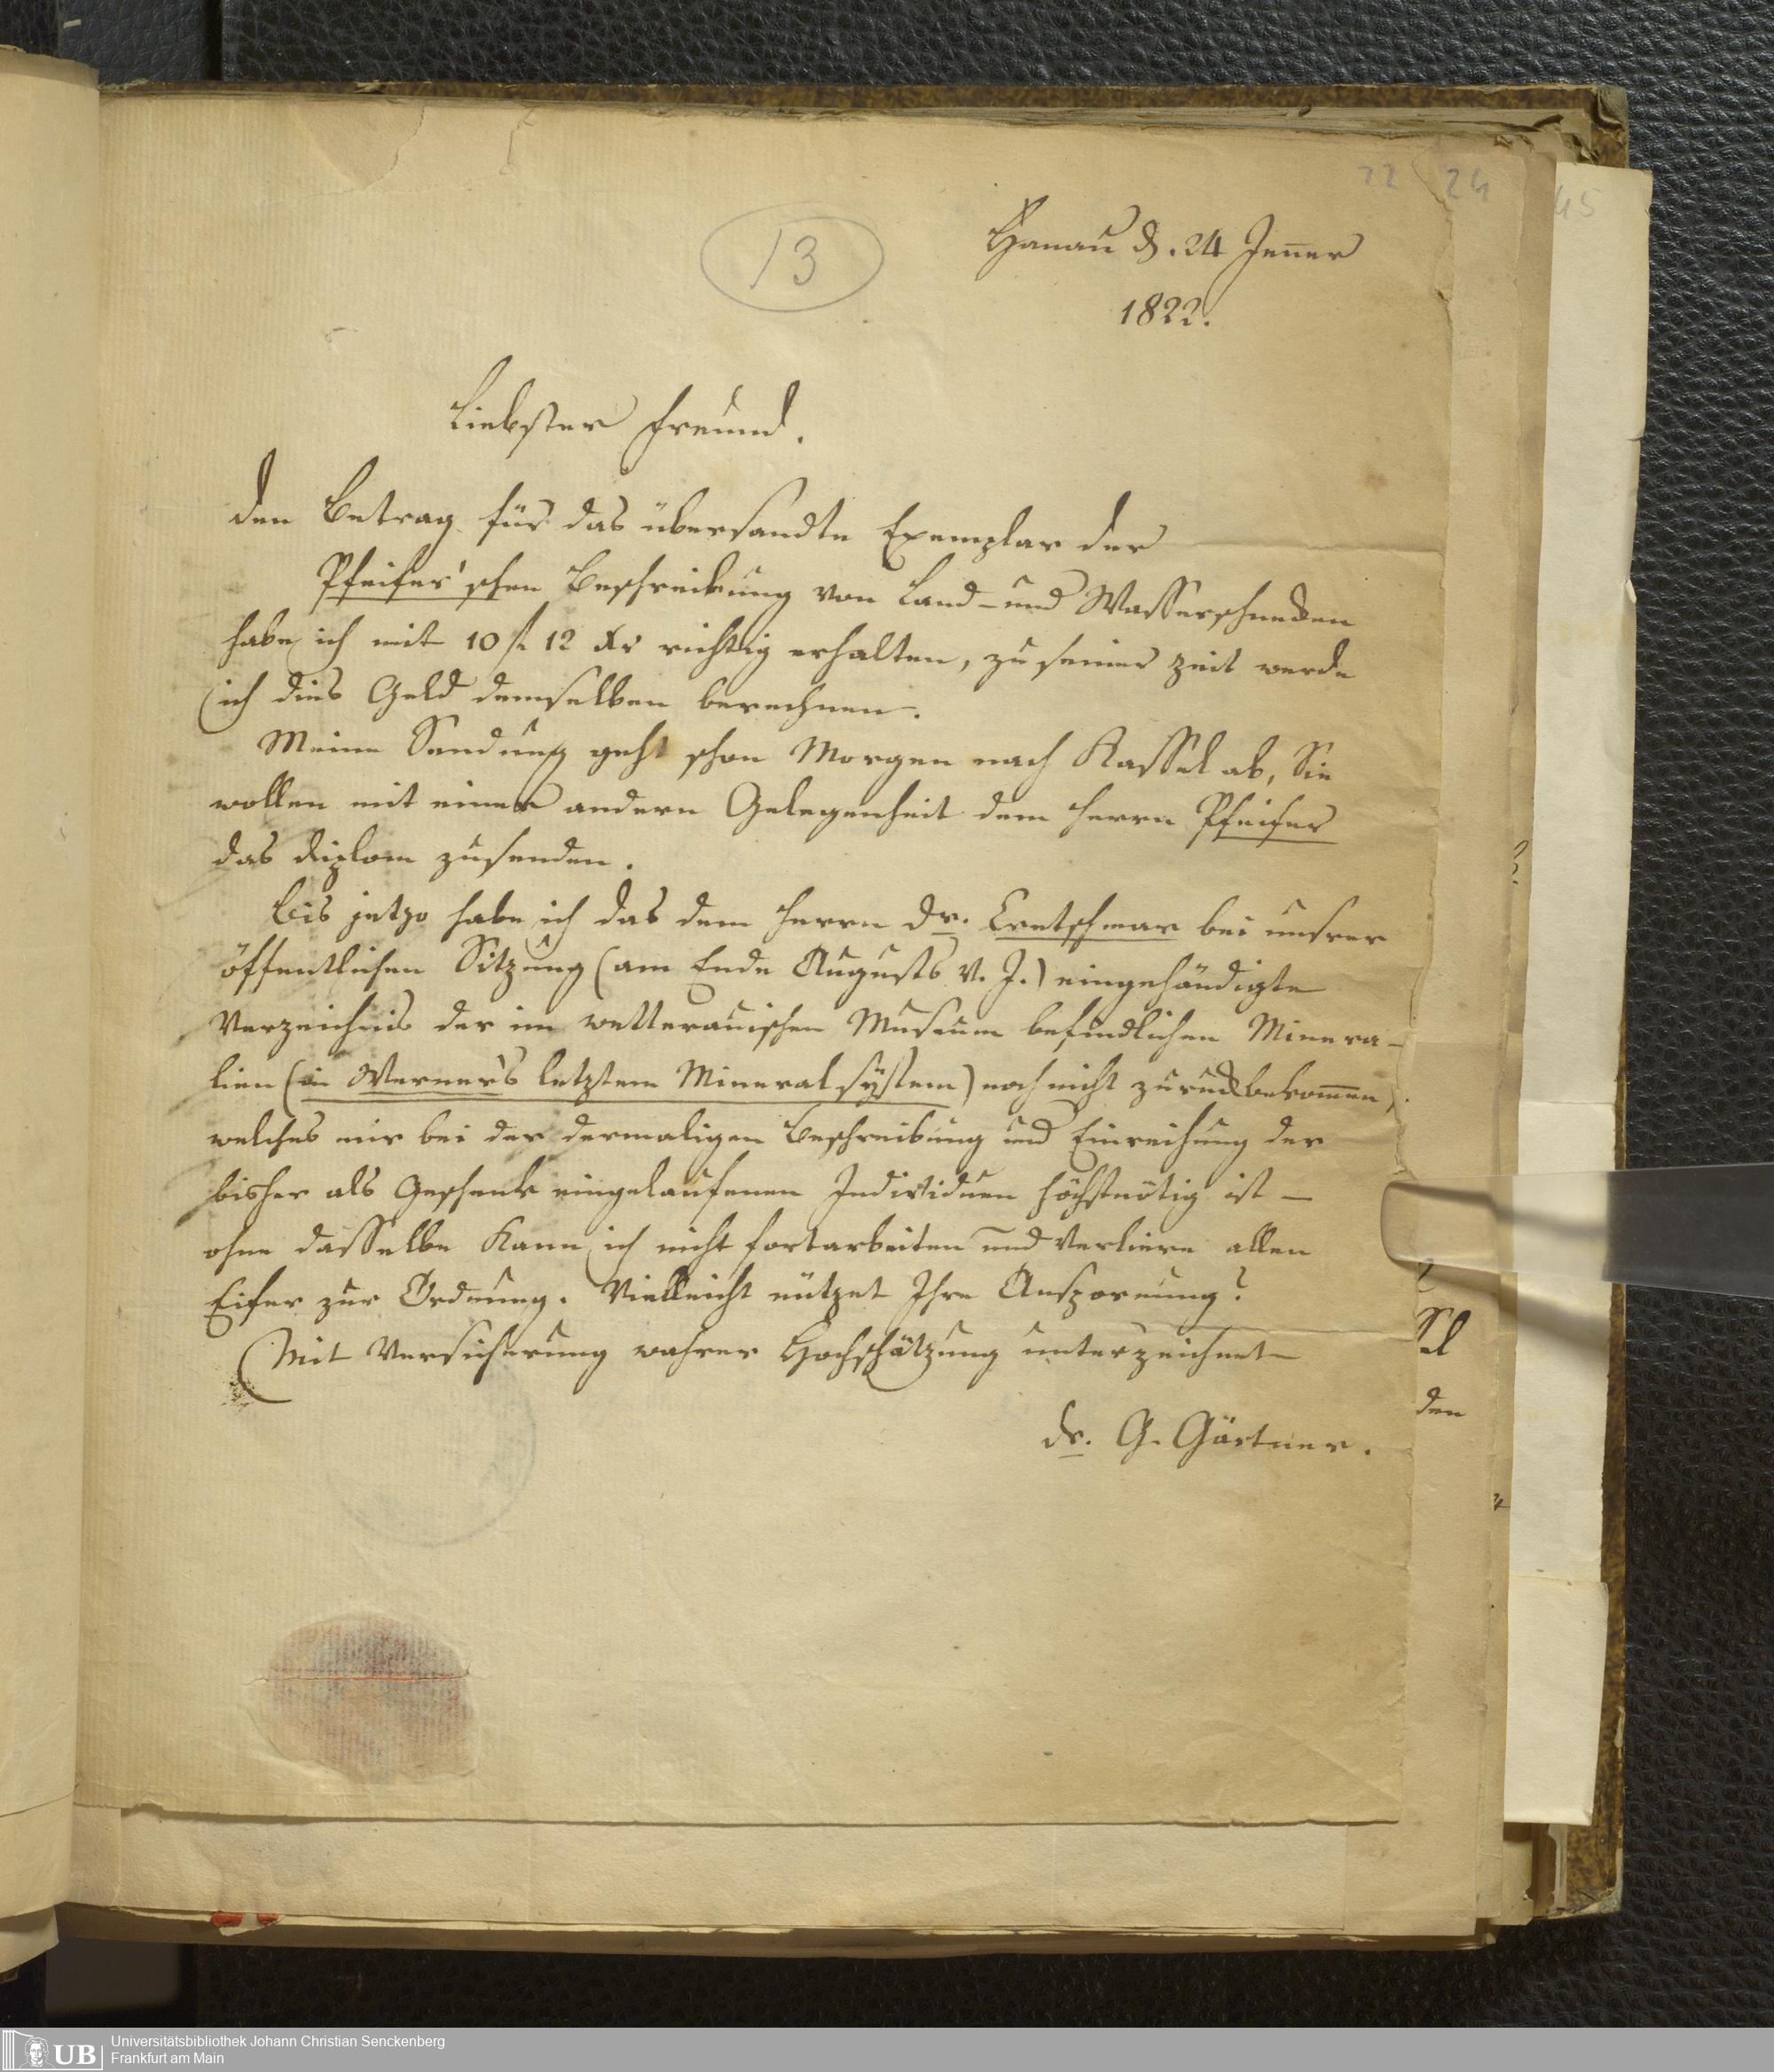 22 24
45
13
Hanau d. 24 Jenner
1822.
Liebster Freund.
Den Betrag für das übersandte Exemplar der
Pfeifer'schen Beschreibung von Land- und Wasserschnecken
habe ich mit 10 fl 12 Xr richtig erhalten, zu seiner Zeit werde
ich dies Geld demselben berechnen.
Meine Sendung geht schon Morgen nach Kassel ab, Sie
wollen mit einer andern Gelegenheit dem Herrn Pfeifer
das Diplom zusenden.
Bis jetzo habe ich das dem Herrn Dr. Cretschmar bei unsrer
öffentlichen Sitzung (am Ende Augusts v. J.) eingehändigte
Verzeichnis der im wetterauischen Museum befindlichen Minera-
lien (in Werner's letztem Mineralsystem) noch nicht zurückbekommen,
welches mir bei der dermaligen Beschreibung und Einreihung der
bisher als Geschenk eingelaufenen Individuen höchstnötig ist —
ohne dasselbe kann ich nicht fortarbeiten und verliere allen
Eifer zur Ordnung. Vielleicht nützet Ihre Anspornung?
Mit Versicherung wahrer Hochschätzung unterzeichnet
Dr. G. Gärtner.
den
UB
Universitätsbibliothek Johann Christian Senckenberg
Frankfurt am Main